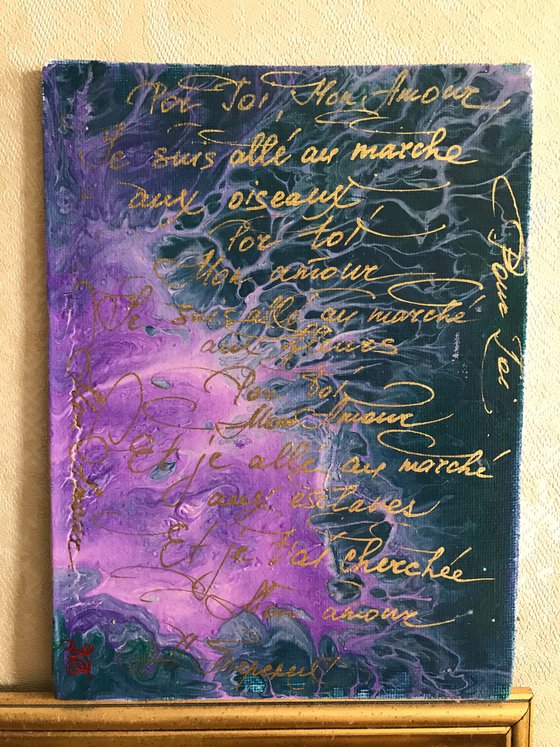 Por Toi, Mon Amour
Je suis allé au marche
aux oiseaux,
Por toi,
Mon amour
Je suis allé au marché
aux fleurs
Por toi
Mon Amour
Et je allé au marché
aux esclaves
Et je t'ai cherchée
Mon amour
J. Prevert
Pour Toi
Mon Amour